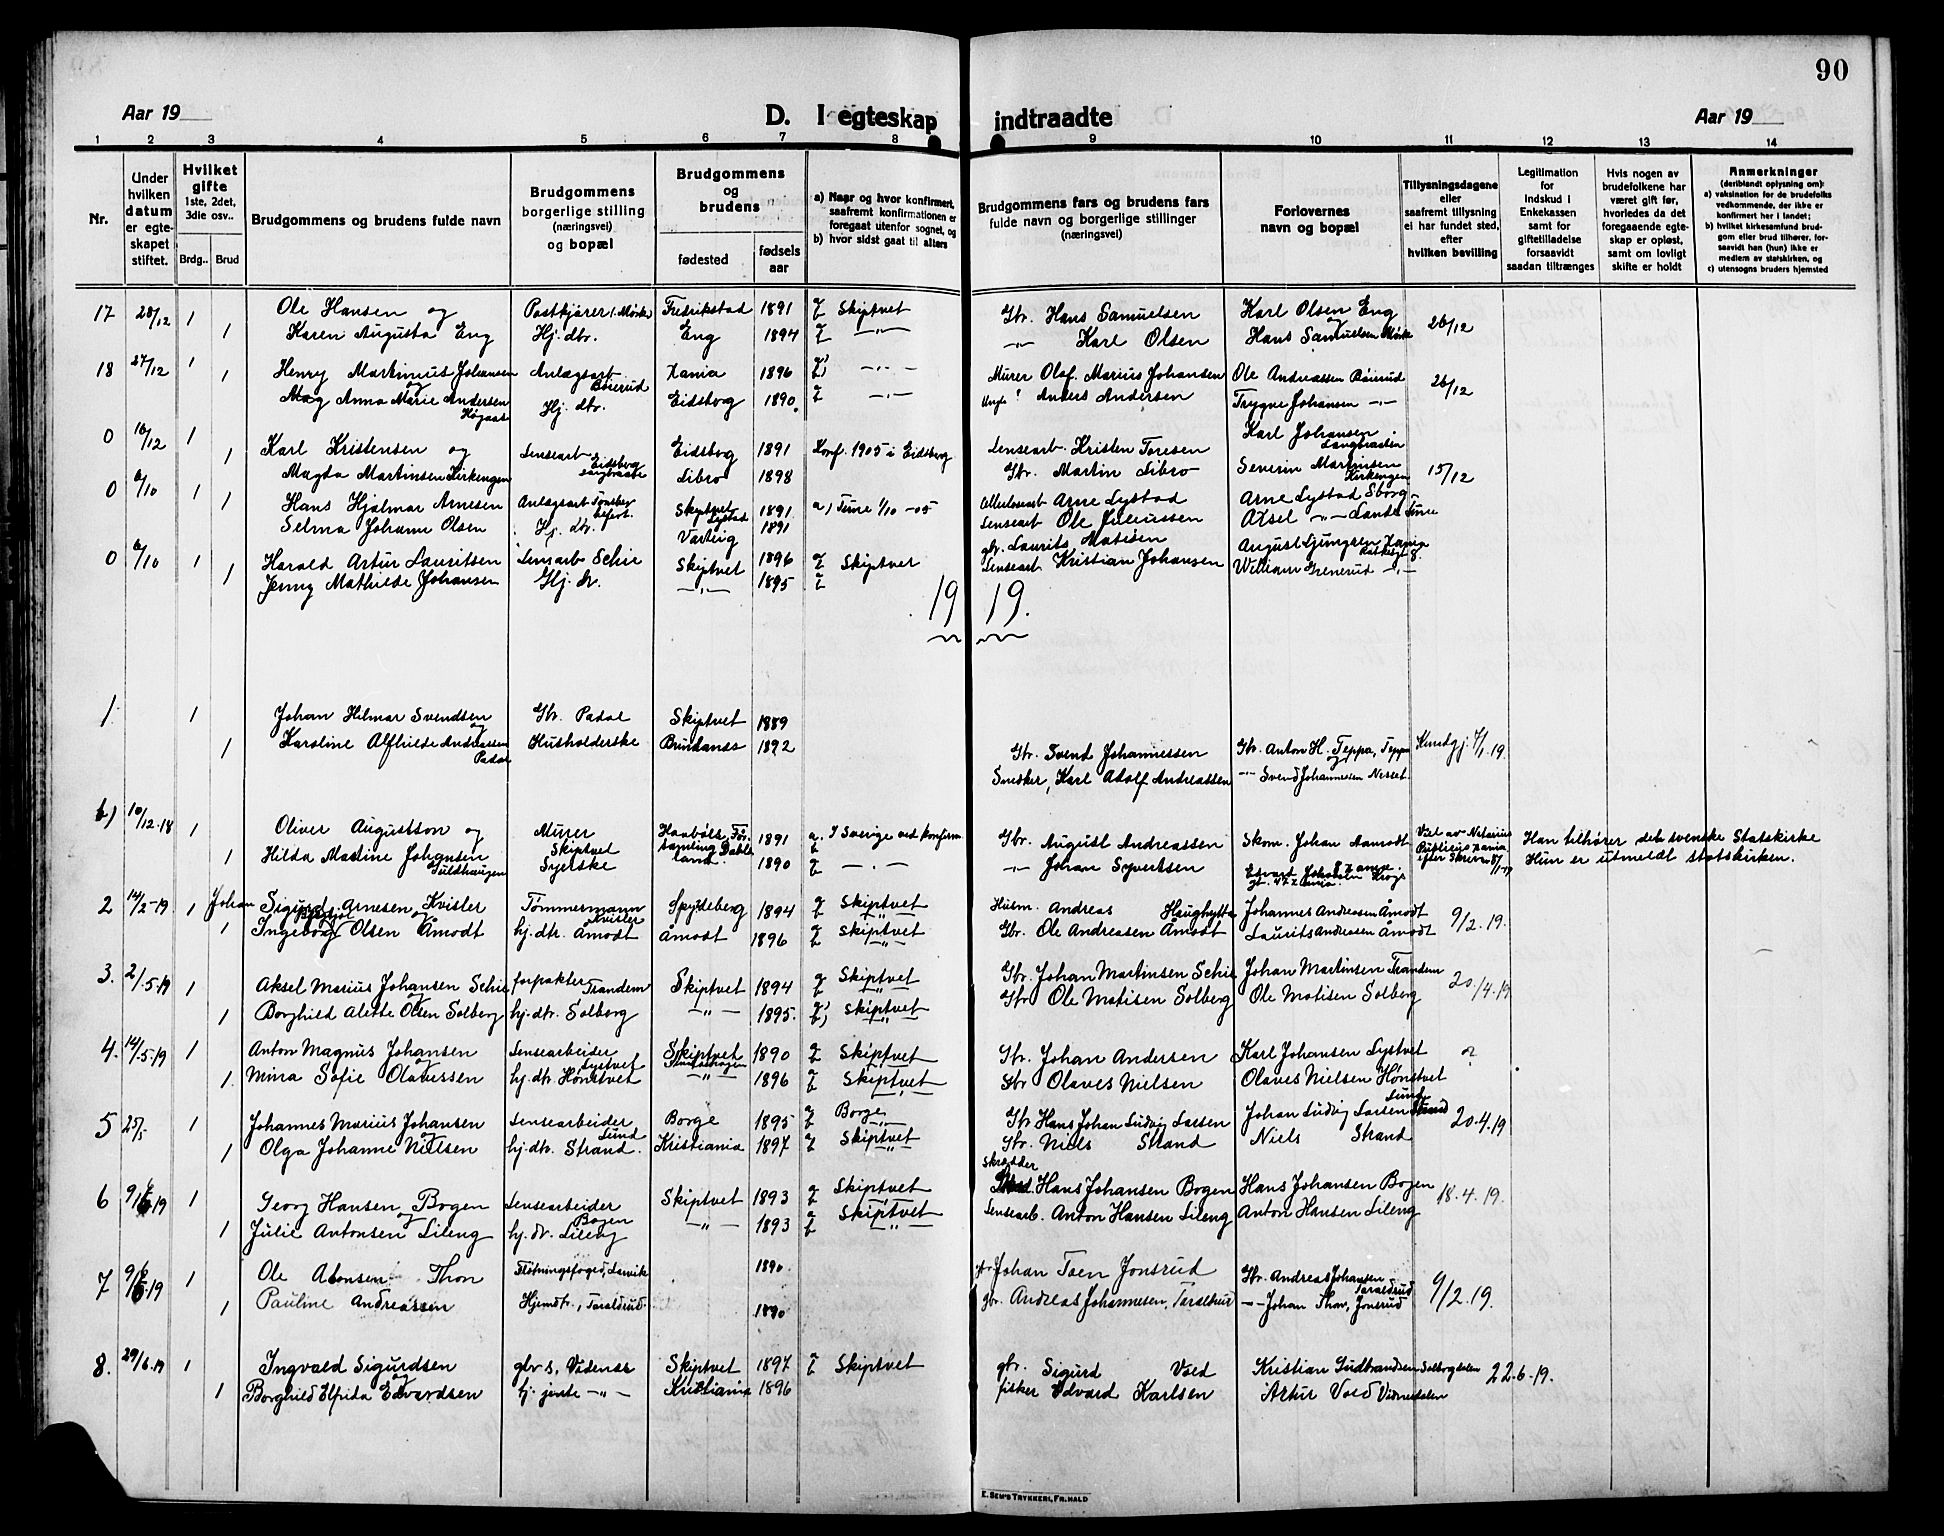 90
Aar 19
D. I egteskap indtraadte
Aar 19
1 2 3 4 5 6 7 8 9 10 11 12 13 14
Nr.
Under hvilken datum er egteskapet stiftet.
Hvilket gifte 1ste, 2det, 3die osv..
Brdg.. Brud
Brudgommens og brudens fulde navn
Brudgommens borgerlige stilling (næringsvei) og bopæl
Brudgommens og brudens
fødested
fødsels aar
a) Naar og hvor konfirmert, saafremt konfirmationen er foregaat utenfor sognet, og
b) hvor sidst gaat til alters
Brudgommens fars og brudens fars fulde navn og borgerlige stillinger (næringsvei)
Forlovernes navn og bopæl
Tillysningsdagene eller saafremt tillysning ei har fundet sted, efter hvilken bevilling
Legitimation for Indskud i Enkekassen samt for giftetilladelse forsaavidt saadan tiltrænges
Hvis nogen av brudefolkene har været gift før, hvorledes da det foregaaende egteskap er opløst, samt om lovligt skifte er holdt
Anmerkninger
(deriblandt oplysning om):
a) vaksination for de brudefolks vedkommende, der ikke er konfirmert her i landet;
b) hvilket kirkesamfund brudgom eller brud tilhører, forsaavidt han (hun) ikke er medlem av statskirken, og
c) utensogns bruders hjemsted
17 28/12 1 Ole Hansen og Postkjører, Mørk Fredrikstad 1891 Skiptvet Gbr. Hans Samuelsen Karl Olsen Eng 26/12
1 Karen Augusta Eng Hj. dtr. Eng 1894 —"— —"— Karl Olsen Hans Samuelsen Mørk
18 27/12 1 Henry Martinius Johansen Anlægsarb. Bøierud Xania 1896 —"— Murer Olaf Marius Johansen Ole Andreassen Bøierud 26/12
1 Anna Marie Andersen Hj. dtr. Eidsberg 1890 —"— Anders Andersen Trygve Johansen —"—
0 16/12 1 Karl Kristensen og Lensearb. Eidsberg 1891 Konf. 1905 i Eidsberg Lensearb. Kristen Toresen Karl Johansen 15/12
1 Magda Martinsen Kirkengen Libro 1898 Gbr. Martin Libro Severin Martinsen Kirkengen
0 6/10 1 Hans Hjalmar Arnesen Anlægsarb. Skiptvet Lystad 1891 a) Tune 1/10 -05 Arne Lystad Arne Lystad Sborg
1 Selma Johanne Olsen Hj. dtr. Varteig 1891 Lensearb Ole Juliussen Aksel —"— Tune
0 6/10 1 Harald Artur Lauritsen Lensarb Schie Skiptvet 1896 Skiptvet gbr. Laurits Matisen August Ljungren Xania
1 Jenny Mathilde Johansen Hj. dr. —"— 1895 Lensearb Kristian Johansen William Grenerud —"—
19 19.
1 1 Johan Hilmar Svendsen og Gbr. Padal Skiptvet 1889 Gbr. Svend Johannessen Gbr. Anton H. Teppa, Teppa og Kundgj. 7/1.19.
1 Karoline Alfhilde Andreassen Padal Husholderske 1892 Snekker, Karl Adolf Andreassen —"— Svend Johannesen
b) 10/12-18 1 Oliver Augustson og Murer Skiptvet 1891 a. I Sverige ved konfirm. Gbr. August Andreassen Skom. Johan Aamodt Viet av Notarius Publicus Xania Han tilhører den svenske Statskirke
1 Hilda Mastine Johansen Guldhaugen Syerske 1890 —"— Johan Syvertsen Hun er utmeldt statskirken.
2 14/2-19 1 Johan Sigurd Arnesen Kvister og Tømmermann Kvister Spydeberg 1894 Skiptvet Husm. Andreas Haughytta Johannes Andreasen Åmodt 9/2.19.
1 Ingeborg Olsen Åmodt hj. dtr. Åmodt Åmodt 1896 Skiptvet Gbr. Ole Andreasen Åmodt Laurits Andreasen Åmodt
3. 2/5-19 1 Aksel Marius Johansen Schie og forpakter Trandem Skiptvet 1894 Skiptvet Gbr. Johan Martinsen Schie Johan Martinsen Trandem 20/4.19
1 Borghild Alette Olsen Solberg hj. dtr. Solberg —"— 1895. Skiptvet Gbr Ole Matisen Solberg Ole Matisen Solberg
4. 14/5-19 1 Anton Magnus Johansen og Lensearbeider Lystvet Skiptvet 1890 Skiptvet Gbr. Johan Andersen Karl Johansen Lystvet ?
1. Mina Sofie Olavessen hj. dtr. Hønstvet —"— 1896 Skiptvet Gbr Olaves Nielsen Olaves Nielsen Hønstvet
5 25/5 1 Johannes Marius Johansen og Lensearbeider Lund Borge 1895 Borge Gbr Hans Johan Ludvig Larsen Johan Ludvig Larsen Lund 20.4.19
1 Olga Johanne Nielsen hj. dtr. Strand. Kristiania 1897 Skiptvet Gbr. Niels Strand Niels Strand
6 9/6.19 1 Georg Hansen Bogen og Lensearbeider Bogen Skiptvet 1893 Skiptvet Skrædder Hans Johansen Bogen Hans Johansen Bogen 18.4.19.
1 Julie Antonsen Lileng hj. dr. Lileng —"— 1893 Skiptvet Lensearb. Anton Hansen Lileng Anton Hansen Lileng
7 9/6.19 1 Ole Thon Fløtningsfoged, 1890. Johan Toen Jonsrud Gbr. Andreas Johansen Taraldrud 9/2.19.
1 Pauline Andreassen Hjemdtr., Taraldrud 1890 gbr. Andreas Johannesen, Taraldrud —"— Johan Thon, Jonsrud
8. 29/6.19 1 Ingvald Sigurdsen og gbr s. Skiptvet 1897 Skiptvet gbr. Sigurd Vold Kristian Gudbrandsen Solbergdalen 22.6.19.
1 Borghild Elfrida Edvardsen hj. jente —"— Kristiania 1896 fisker Edvard Karlsen Artur Vold
E. SEM'S TRYKKERI, FR.HALD